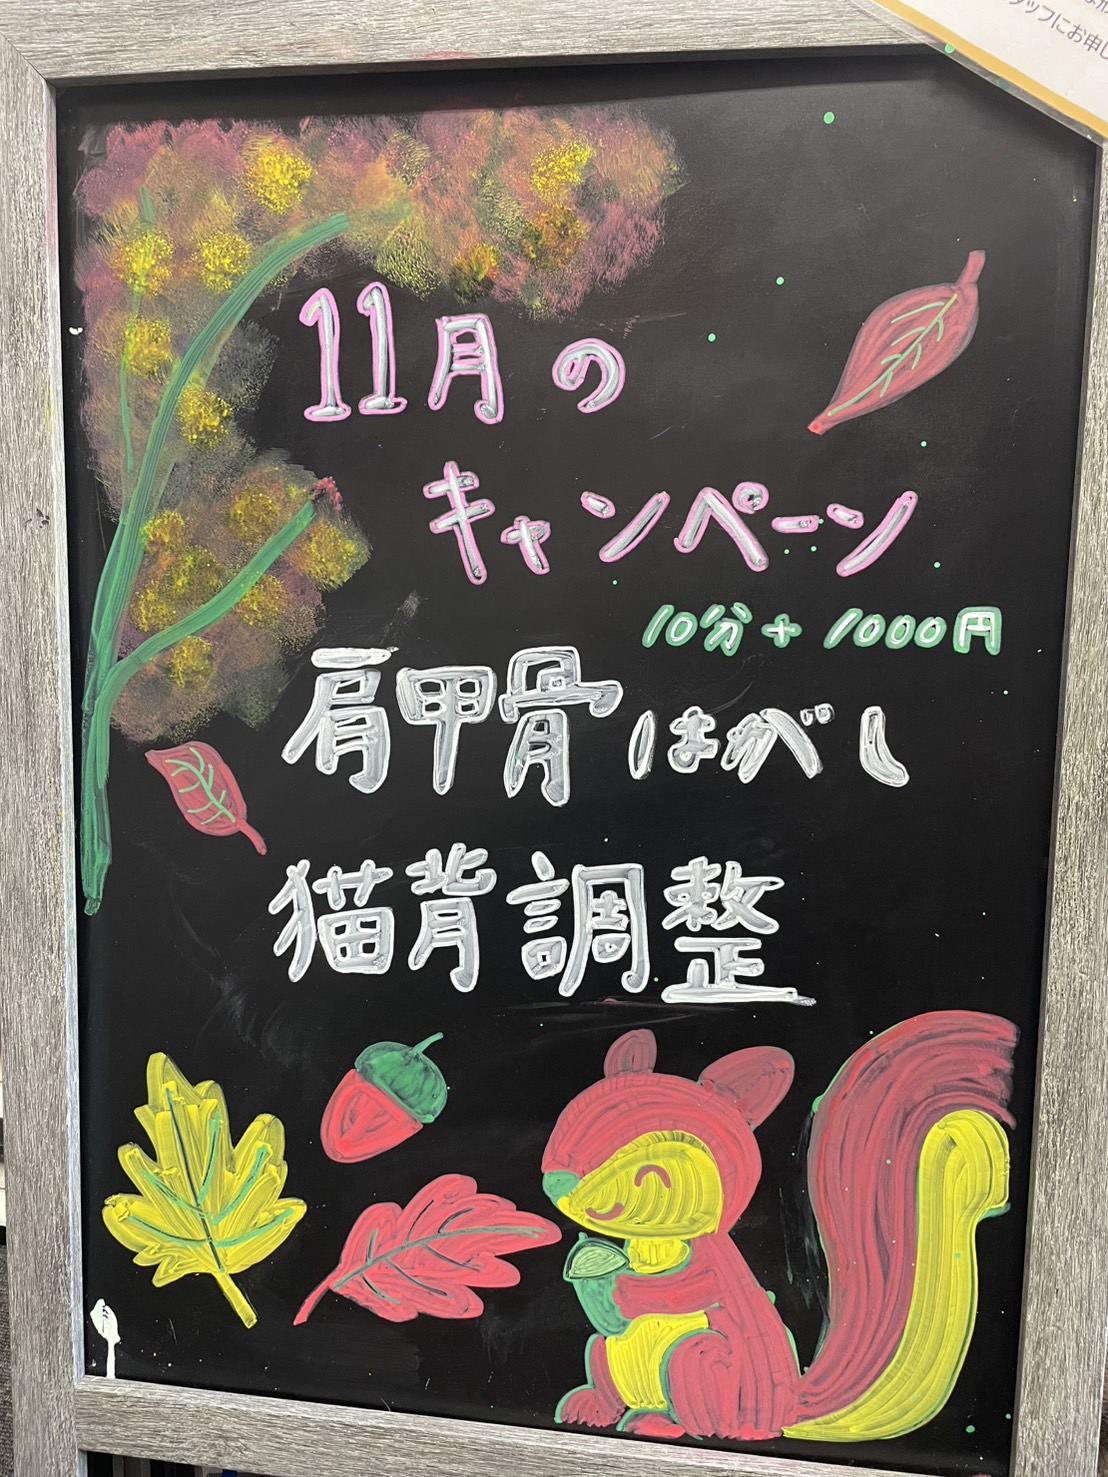 ッフにお申し
11月の
キャンペーン
10分+1000円
肩甲骨はがし
猫背調整